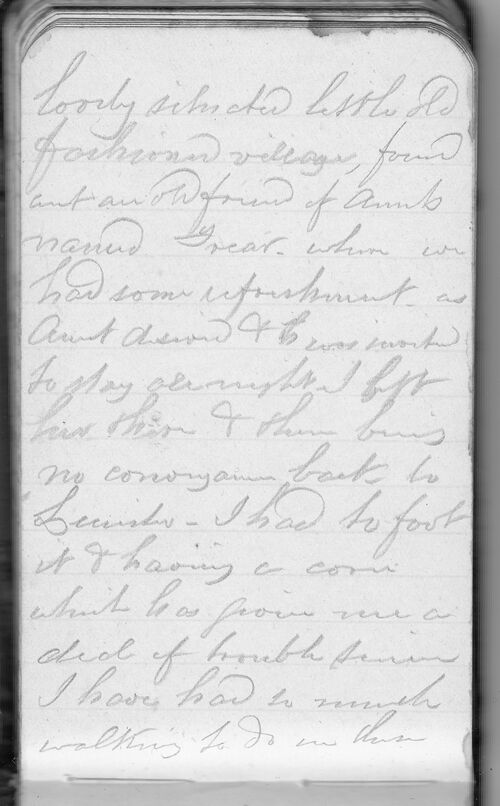 lovely situated little old
fashioned village, found
out an old friend of Aunts
named Frear. where we
had some refreshment - as
Aunt desired & was invited
to stay all night I left
her there & there being
no conveyance back to
Leicester - I had to foot
it & having a corn
which has given me a
deal of trouble since
I have had so much
walking to do in these